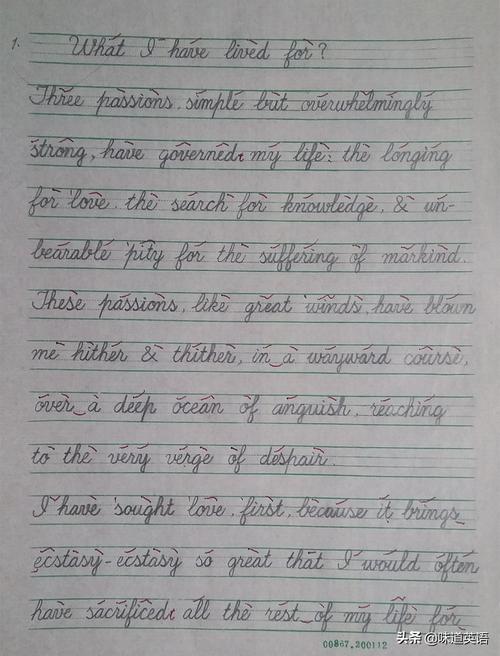 1. What I have lived for?
Three passions, simple but overwhelmingly
strong, have governed my life: the longing
for love, the search for knowledge, & un-
bearable pity for the suffering of mankind.
These passions, like great winds, have blown
me hither & thither, in a wayward course,
over a deep ocean of anguish, reaching
to the very verge of despair.
I have sought love, first, because it brings
ecstasy-ecstasy so great that I would often
have sacrificed all the rest of my life for
00867,200112
头条 @味道英语